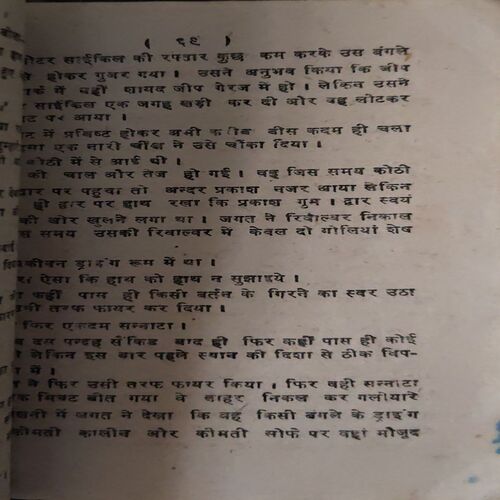 ( ६९ )
मोटर साईकिल की रफ्तार कुछ कम करके उस बंगले
होकर गुजर गया । उसने अनुभव किया कि जीप
में नहीं शायद जीप गैरज में हो । लेकिन उसने
साईकिल एक जगह खड़ी कर दी और वह लौटकर
पर आया ।
में प्रविष्ट होकर अभी बीस कदम ही चला
एक नारी चीख ने उसे चौंका दिया ।
कोठी में से आई थी ।
की चाल और तेज हो गई । वह जिस समय कोठी
पर पहुचा तो अन्दर प्रकाश नजर आया लेकिन
ही द्वार पर हाथ रखा कि प्रकाश गुम । द्वार स्वयं
की ओर खुलने लगा था । जगत ने रिवाल्वर निकाल
समय उसकी रिवाल्वर में केवल दो गोलियां शेष
ड्राइंग रूम में था ।
ऐसा कि हाथ को हाथ न सुझाइये ।
कहीं पास ही किसी बर्तन के गिरने का स्वर उठा
तरफ फायर कर दिया ।
फिर एकदम सन्नाटा ।
दस पन्द्रह सेकिंड बाद ही फिर कहीं पास ही कोई
लेकिन इस बार पहले स्थान की दिशा से ठीक विप-
में ।
ने फिर उसी तरफ फायर किया । फिर वही सन्नाटा
बीत गया वे बाहर निकल कर गलीयारे
में जगत ने देखा कि वह किसी बंगले के ड्राइंग
कीमती कालीन और कीमती सोफे पर वहां मौजूद